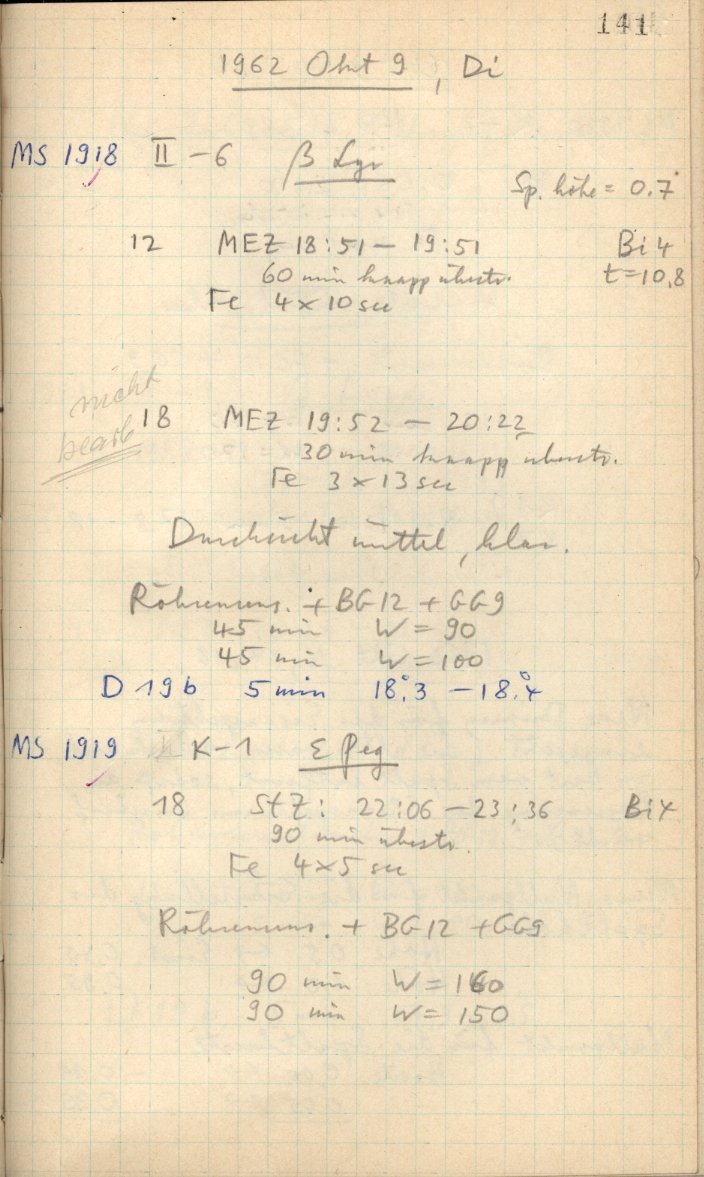 141
1962 Okt 9, Di
MS 1918 II - 6 β Lyr
Sp. höhe = 0.7
12 MEZ 18:51 - 19:51 Bi 4
60 min knapp überstr. t = 10,8
Fe 4 x 10 sec
nicht
bearb
18 MEZ 19:52 - 20:22
30 min knapp überstr.
Fe 3 x 13 sec
Durchsicht mittel, klar.
Röhrenuns. + BG12 + GG9
45 min W = 90
45 min W = 100
D 19 b 5 min 18°.3 - 18°.4
MS 1919 K - 1 ε Peg
18 StZ: 22:06 - 23:36 Bi 4
90 min überstr.
Fe 4 x 5 sec
+ BG12 + GG9
90 min W = 160
90 min W = 150